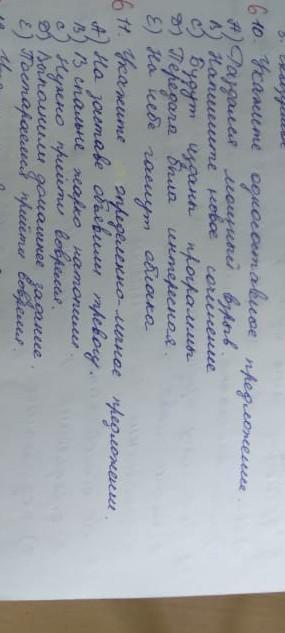 б 10. Укажите односоставное предложение.
А) Раздался мощный взрыв.
В) Напишите новое сочинение
С) Будут изданы программы
D) Передача была интересная.
Е) На небе тают облака
б 11. Укажите определенно-личное предложение.
А) На заставе объявили тревогу.
В) В спальне жарко натопили.
С) Нужно прийти вовремя.
D) Выполним домашнее задание.
Е) Постарался прийти вовремя.